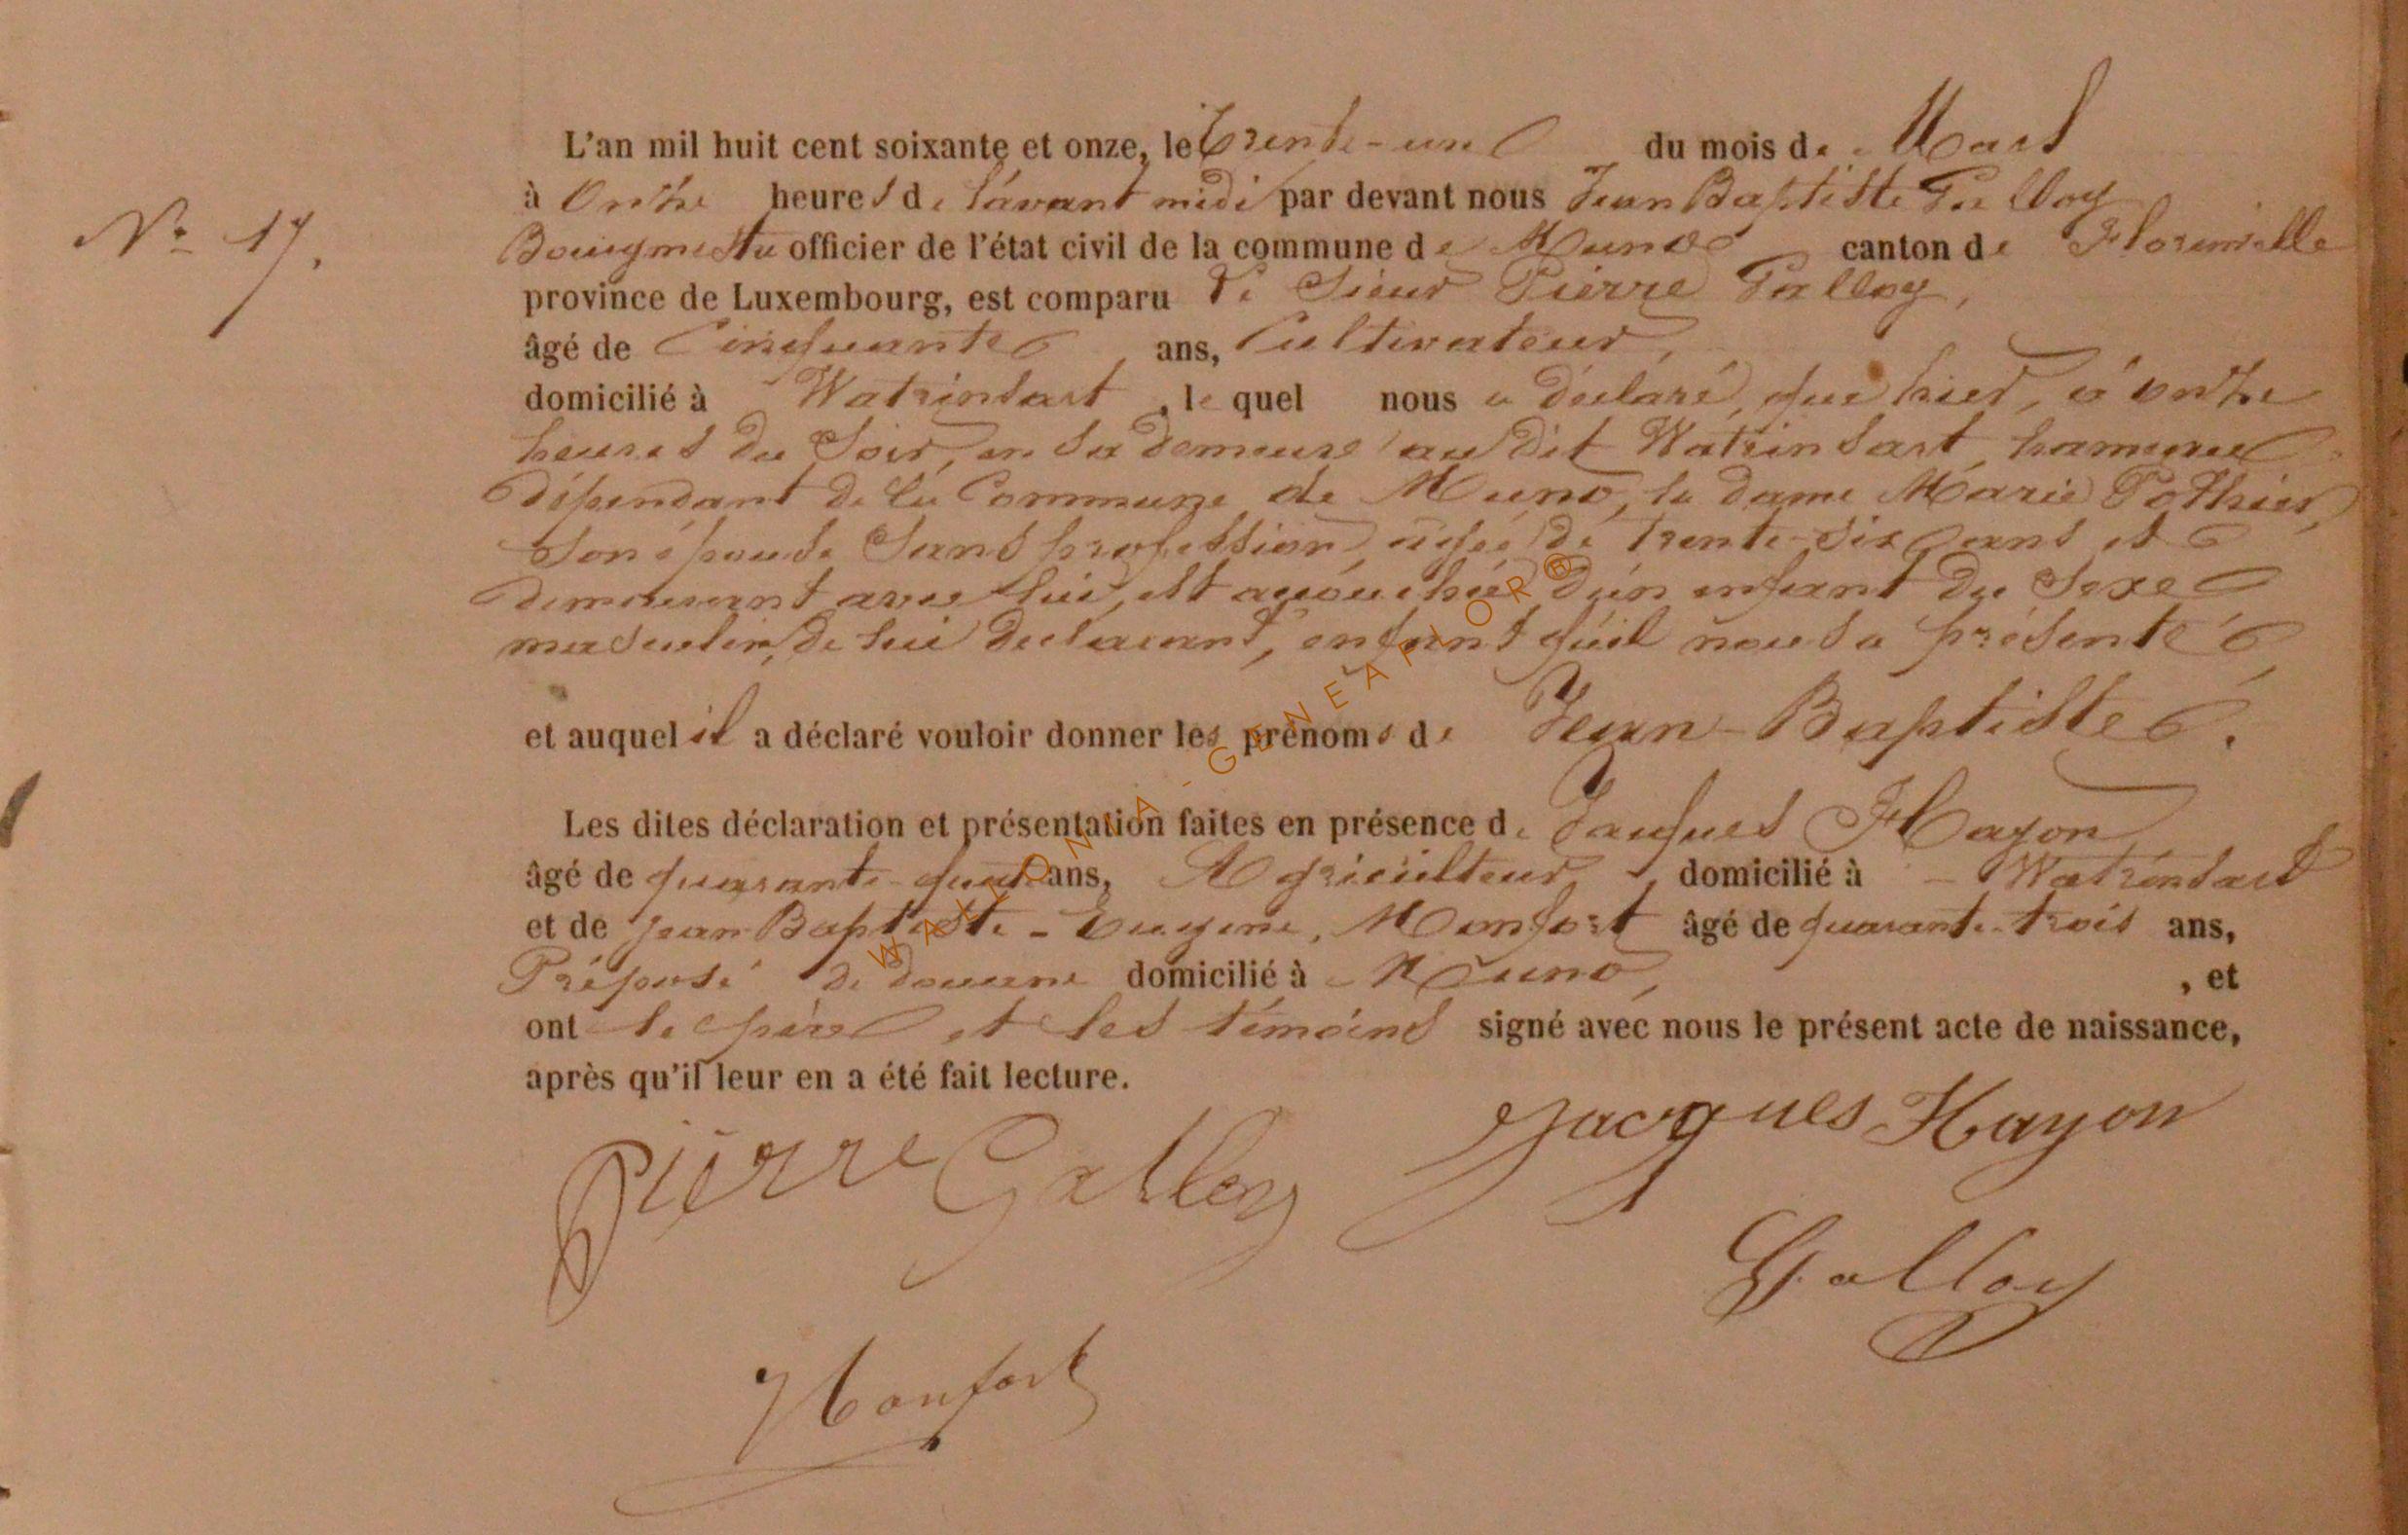 L'an mil huit cent soixante et onze, le trente-un du mois de Mars
N° 17.
à onze heures de l'avant midi par devant nous Jean Baptiste Galloy
Bourgmestre officier de l'état civil de la commune de Muno canton de Florenville
province de Luxembourg, est comparu le Sieur Pierre Galloy,
âgé de Cinquante ans, Cultivateur,
domicilié à Watrinsart, lequel nous a déclaré, que hier, à onze
heures du Soir, en sa demeure au dit Watrinsart, hameau
dépendant de la Commune de Muno, la dame Marie Pothier,
son épouse sans profession, agée de trente-six ans et
demeurant avec lui, est accouchée d'un enfant du Sexe
masculin, de lui declarant, enfant qu'il nous a présenté
et auquel il a déclaré vouloir donner les prénoms de Jean-Baptiste.
Les dites déclaration et présentation faites en présence de Jacques Hayon
âgé de quarante-quatre ans, Agriculteur, domicilié à Watrinsart
et de Jean Baptiste-Eugene, Monfort âgé de quarante-trois ans,
Préposé de douane domicilié à Muno, , et
ont le père et les témoins signé avec nous le présent acte de naissance,
après qu'il leur en a été fait lecture.
Jacques Hayon
Pierre Galloy
Galloy
Monfort
WALLONIA-GENEAPHOR®